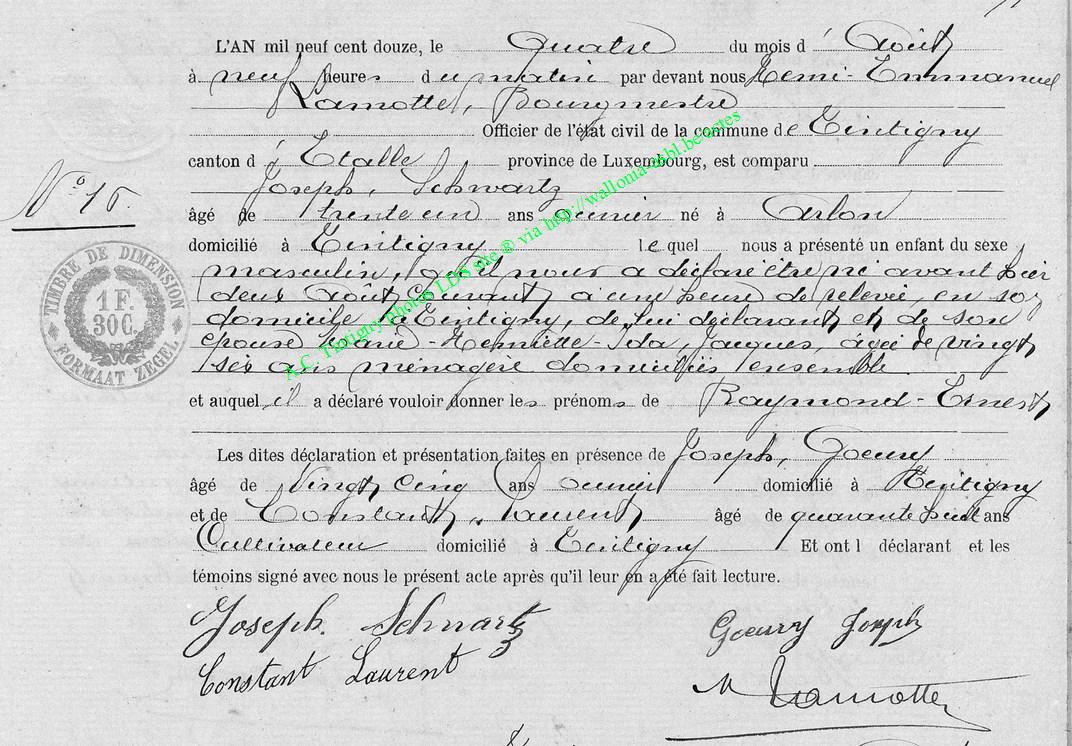 L'AN mil neuf cent douze, le quatre du mois d' Août
à neuf heures du matin par devant nous Remi-Emmanuel
Lamotte, Bourgmestre
Officier de l'état civil de la commune de Tintigny
canton d' Etalle province de Luxembourg, est comparu
Joseph, Schwartz
âgé de trente un ans ouvrier né à Arlon
domicilié à Tintigny lequel nous a présenté un enfant du sexe
masculin, qu'il nous a déclaré être né avant hier
deux Août courant à une heure de relevée, en son
domicile à Tintigny, de lui déclarant et de son
épouse Marie-Henriette-Ida, Jacques, agée de vingt
six ans ménagère domiciliés ensemble.
et auquel il a déclaré vouloir donner les prénoms de Raymond-Ernest
Les dites déclaration et présentation faites en présence de Joseph, Goeury
âgé de vingt cinq ans ouvrier domicilié à Tintigny
et de Constant, Laurent âgé de quarante huit ans
Cultivateur domicilié à Tintigny Et ont l déclarant et les
témoins signé avec nous le présent acte après qu'il leur en a été fait lecture.
Joseph Schwartz
Goeury Joseph
Constant Laurent
Lamotte
N° 15.
TIMBRE DE DIMENSION
1 F.
30 C.
FORMAAT ZEGEL
A.C. Tintigny photos LDS site ® via http://wallonia-asbl.be/actes